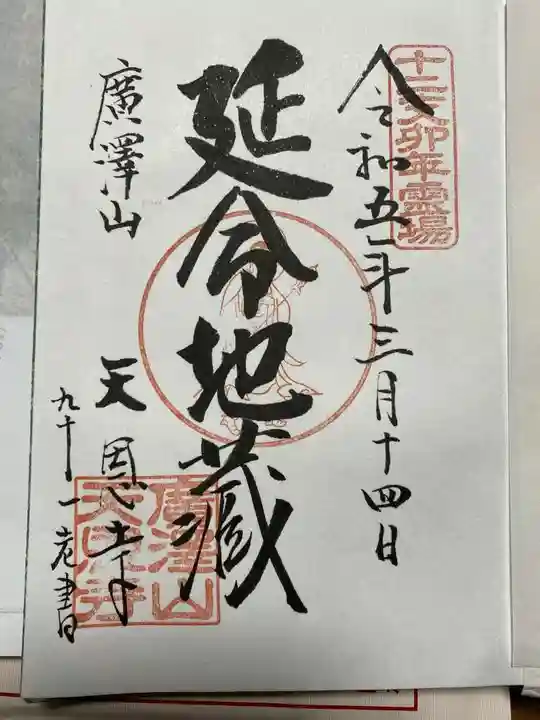 十二支卯年霊場
令和五年三月十四日
延命地蔵
廣澤山
天恩寺
九十一老書
廣澤山
天恩寺